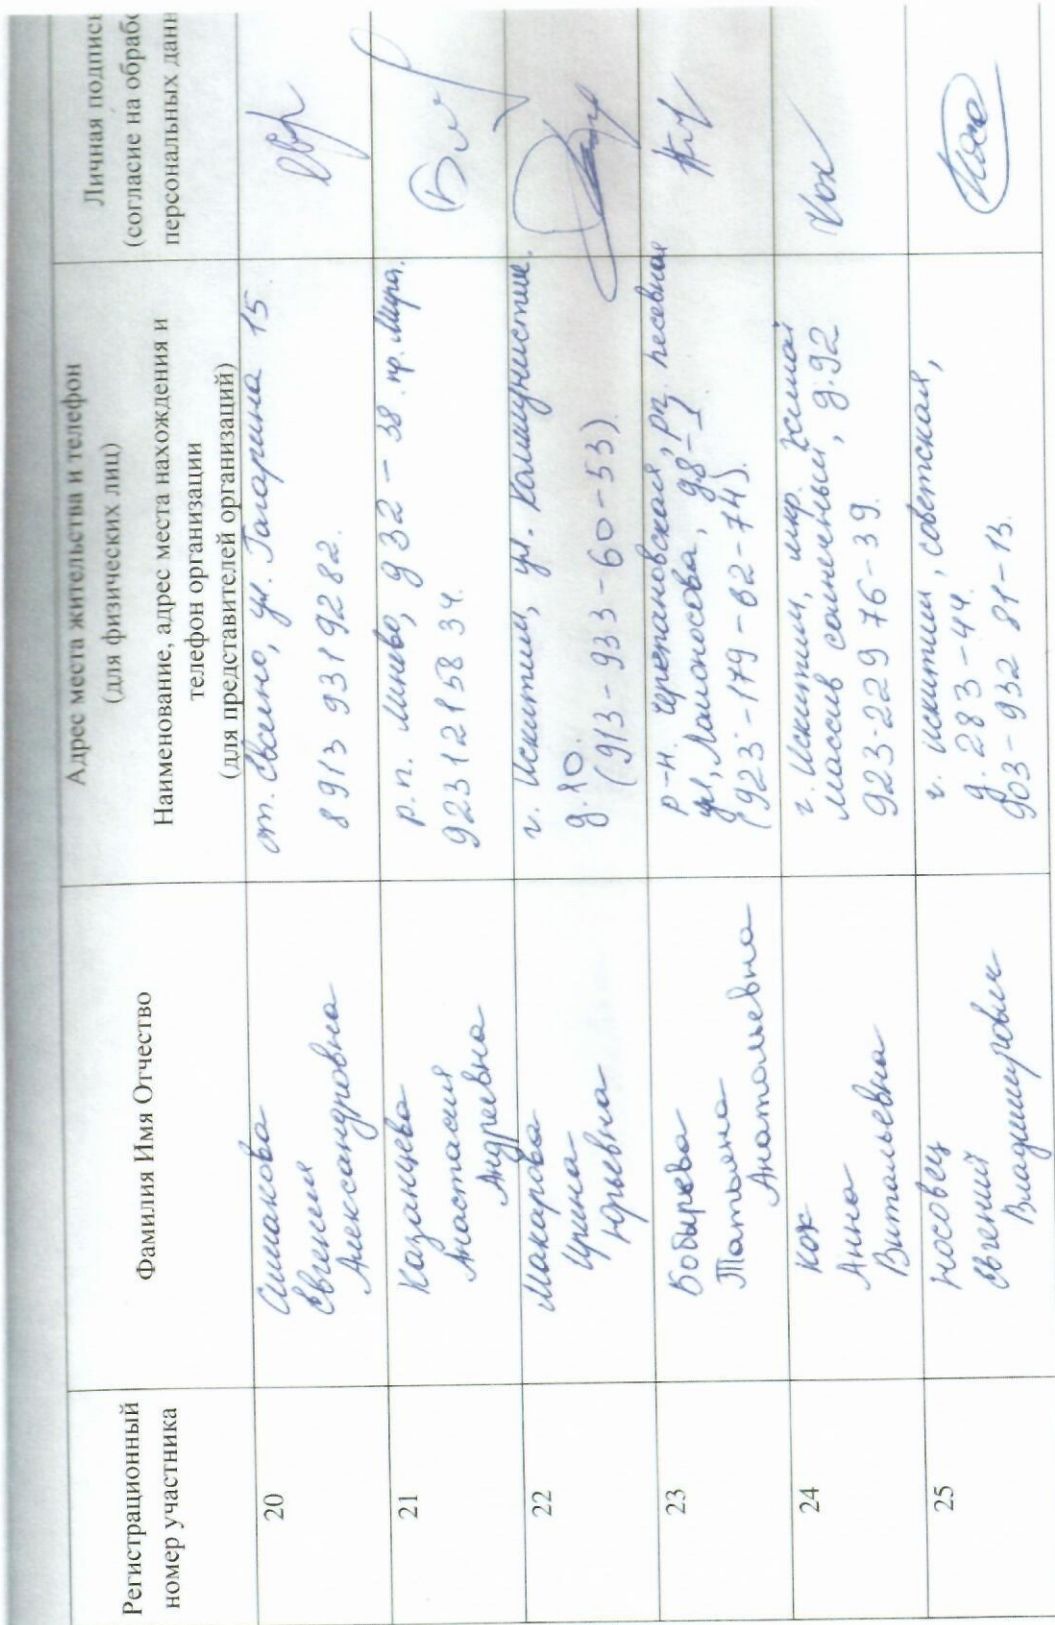 Регистрационный
номер участника
Фамилия Имя Отчество
Адрес места жительства и телефон
(для физических лиц)
Наименование, адрес места нахождения и
телефон организации
(для представителей организаций)
Личная подпись
(согласие на обрабо
персональных данн
20
Симакова
Евгения
Александровна
ст. Евсино, ул. Гагарина 15.
8913 931 92 82.
21
Казанцева
Анастасия
Андреевна
р.п. Линево, д 32 – 38. пр. Мира.
923 121 58 34.
22
Макарова
Ирина
Юрьевна
г. Искитим, ул. Коммунистич.
д. 10.
(913 – 933 – 60 – 53)
23
Бобырева
Татьяна
Анатольевна
р-н. Черепановская, рп. Посевная
ул, Ломоносова, д8-1
(923 – 179 – 62 – 74).
24
Кох
Анна
Витальевна
г. Искитим, мкр. Жилой
массив солнечный, д.92
923-229 76 – 39.
25
Носовец
Евгений
Владимирович
г. Искитим, советская,
д. 283 – 44.
903 – 932 81 – 13.